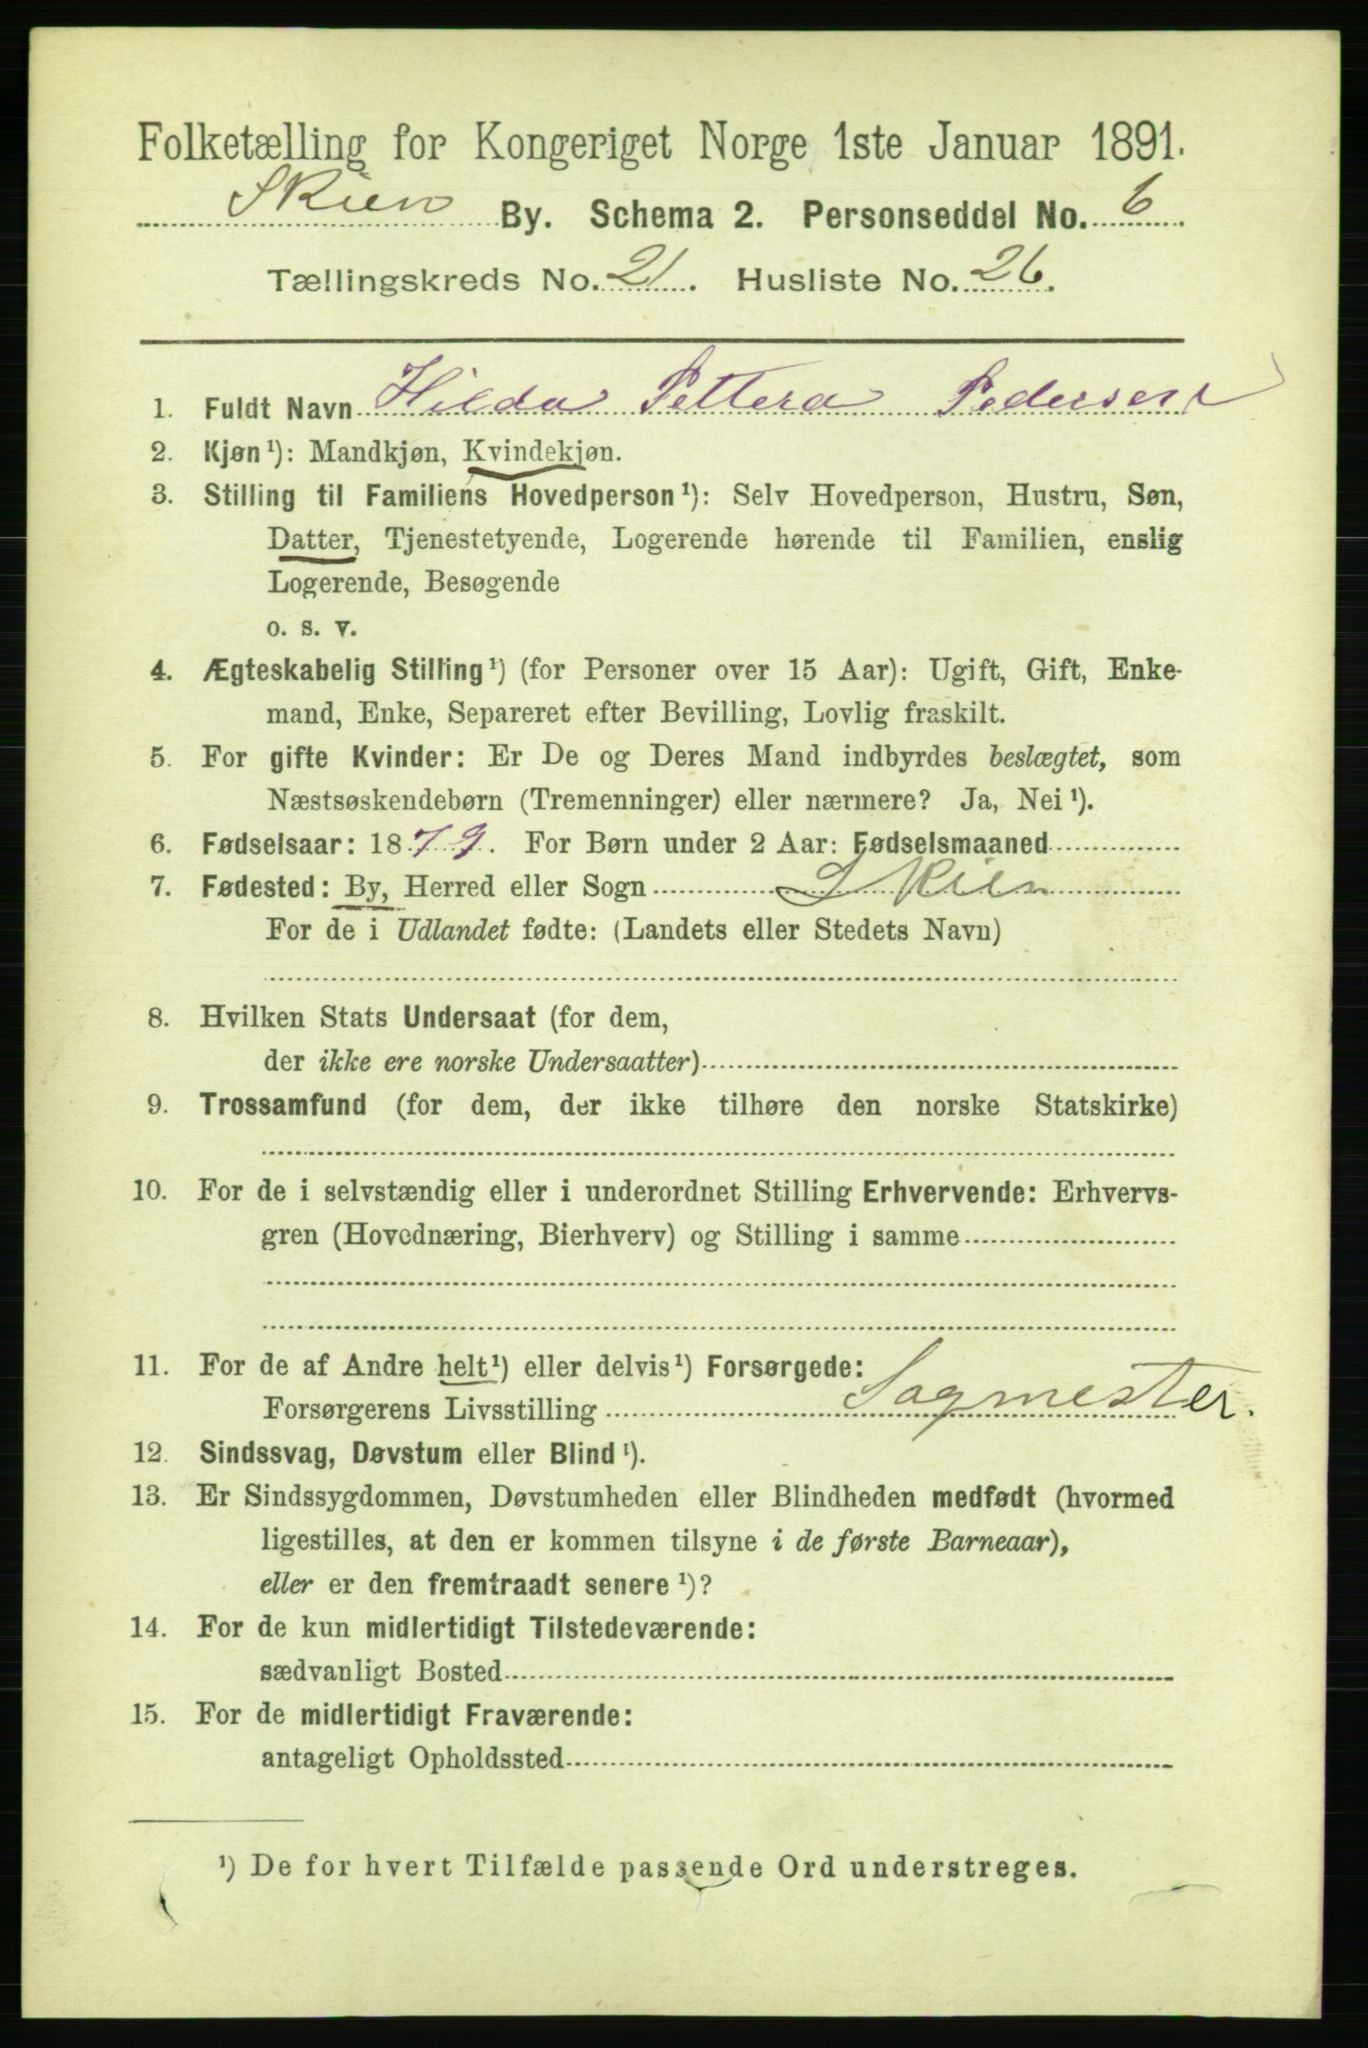 Folketælling for Kongeriget Norge 1ste Januar 1891.
Skien By. Schema 2. Personseddel No. 6
Tællingskreds No. 21. Husliste No. 26.
1. Fuldt Navn Hilda Pettera Pedersen
2. Kjøn¹): Mandkjøn, Kvindekjøn.
3. Stilling til Familiens Hovedperson¹): Selv Hovedperson, Hustru, Søn,
Datter, Tjenestetyende, Logerende hørende til Familien, enslig
Logerende, Besøgende
o. s. v.
4. Ægteskabelig Stilling¹) (for Personer over 15 Aar): Ugift, Gift, Enke-
mand, Enke, Separeret efter Bevilling, Lovlig fraskilt.
5. For gifte Kvinder: Er De og Deres Mand indbyrdes beslægtet, som
Næstsøskendebørn (Tremenninger) eller nærmere? Ja, Nei¹).
6. Fødselsaar: 1879. For Børn under 2 Aar: Fødselsmaaned
7. Fødested: By, Herred eller Sogn Skien
For de i Udlandet fødte: (Landets eller Stedets Navn)
8. Hvilken Stats Undersaat (for dem,
der ikke ere norske Undersaatter)
9. Trossamfund (for dem, der ikke tilhøre den norske Statskirke)
10. For de i selvstændig eller i underordnet Stilling Erhvervende: Erhvervs-
gren (Hovednæring, Bierhverv) og Stilling i samme
11. For de af Andre helt¹) eller delvis¹) Forsørgede:
Forsørgerens Livsstilling Sagmester.
12. Sindssvag, Døvstum eller Blind¹).
13. Er Sindssygdommen, Døvstumheden eller Blindheden medfødt (hvormed
ligestilles, at den er kommen tilsyne i de første Barneaar),
eller er den fremtraadt senere¹)?
14. For de kun midlertidigt Tilstedeværende:
sædvanligt Bosted
15. For de midlertidigt Fraværende:
antageligt Opholdssted
¹) De for hvert Tilfælde passende Ord understreges.